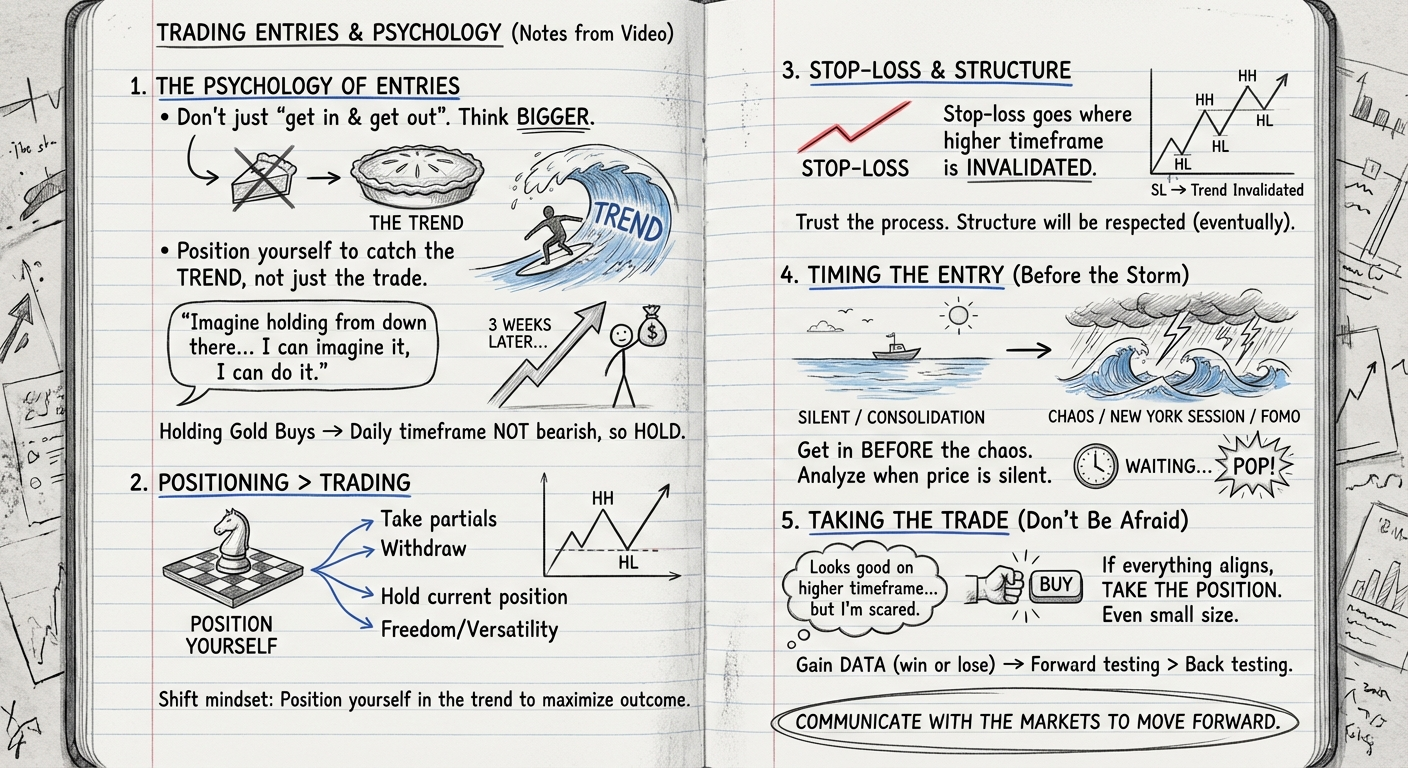 TRADING ENTRIES & PSYCHOLOGY (Notes from Video)
1. THE PSYCHOLOGY OF ENTRIES
• Don't just "get in & get out". Think BIGGER.
THE TREND
TREND
• Position yourself to catch the
TREND, not just the trade.
"Imagine holding from down
there... I can imagine it,
I can do it."
3 WEEKS
LATER...
$
Holding Gold Buys → Daily timeframe NOT bearish, so HOLD.
2. POSITIONING > TRADING
Take partials
Withdraw
Hold current position
Freedom/Versatility
POSITION
YOURSELF
HH
HL
Shift mindset: Position yourself in the trend to maximize outcome.
3. STOP-LOSS & STRUCTURE
STOP-LOSS
Stop-loss goes where
higher timeframe
is INVALIDATED.
HH
HH
HL
HL
HL
SL → Trend Invalidated
Trust the process. Structure will be respected (eventually).
4. TIMING THE ENTRY (Before the Storm)
SILENT / CONSOLIDATION
CHAOS / NEW YORK SESSION / FOMO
Get in BEFORE the chaos.
Analyze when price is silent.
WAITING...
POP!
5. TAKING THE TRADE (Don't Be Afraid)
Looks good on
higher timeframe...
but I'm scared.
BUY
If everything aligns,
TAKE THE POSITION.
Even small size.
Gain DATA (win or lose) → Forward testing > Back testing.
COMMUNICATE WITH THE MARKETS TO MOVE FORWARD.